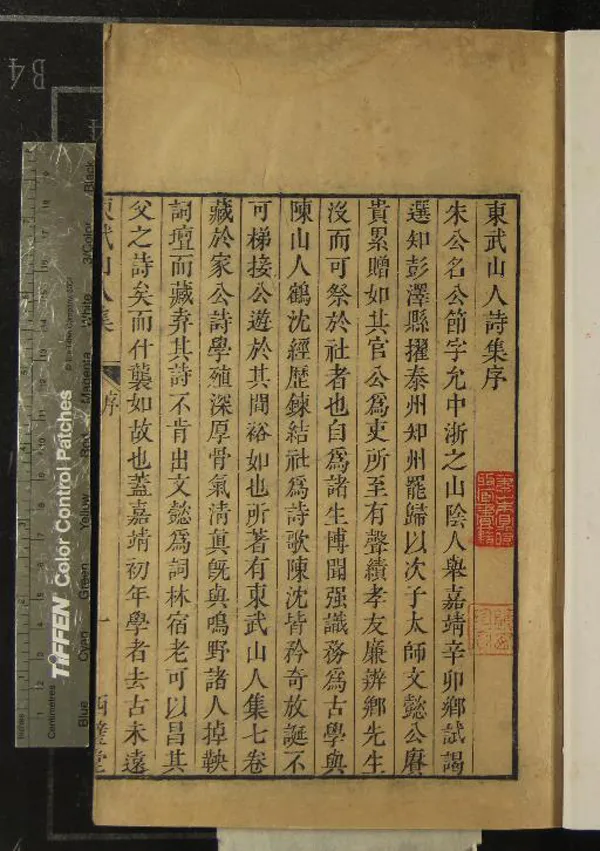 東武山人詩集序
朱公名公節字允中浙之山陰人舉嘉靖辛卯鄉試謁
選知彭澤縣擢泰州知州罷歸以次子太師文懿公賡
貴累贈如其官公爲吏所至有聲績孝友廉辨鄉先生
沒而可祭於社者也自爲諸生博聞强識務爲古學與
陳山人鶴沈經歷鍊結社爲詩歌陳沈皆矜奇放誕不
可梯接公遊於其間裕如也所著有東武山人集七卷
藏於家公詩學殖深厚骨氣清眞旣與鳴野諸人掉鞅
詞壇而藏弆其詩不肯出文懿爲詞林宿老可以昌其
父之詩矣而什襲如故也蓋嘉靖初年學者去古未遠
東武山人集 序 一
B4
TIFFEN Color Control Patches
Centimetres
Inches
Blue
Cyan
Green
Yellow
Red
Magenta
White
3/Color
Black